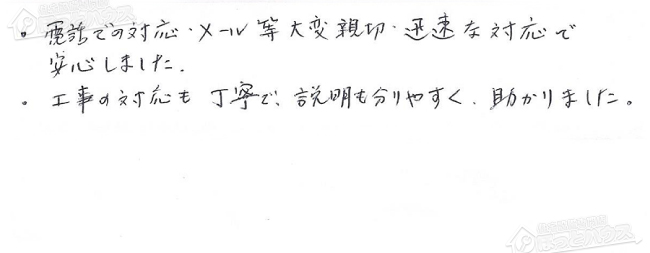 ・電話での対応・メール等大変親切・迅速な対応で
安心しました.
・工事の対応も丁寧で、説明も分りやすく、助かりました。